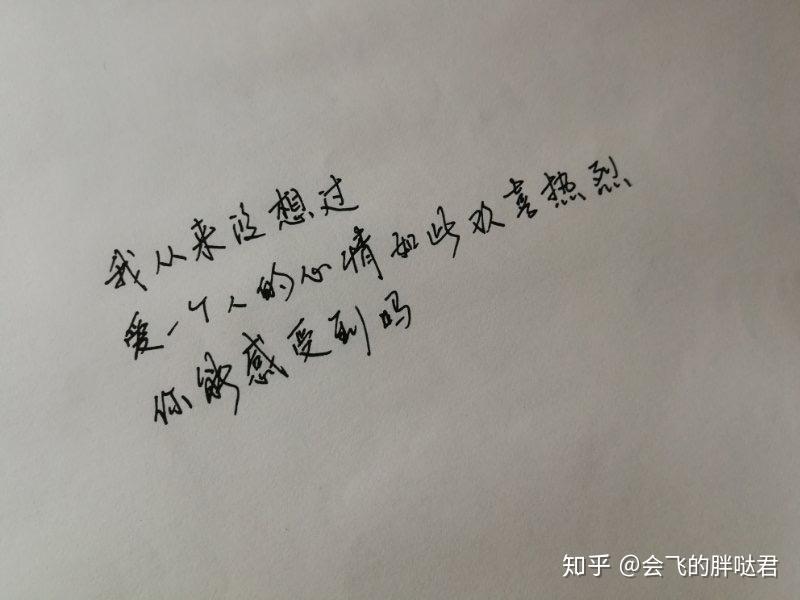 我从来没想过
爱一个人的心情如此欢喜热烈
你能感受到吗
知乎 @会飞的胖哒君